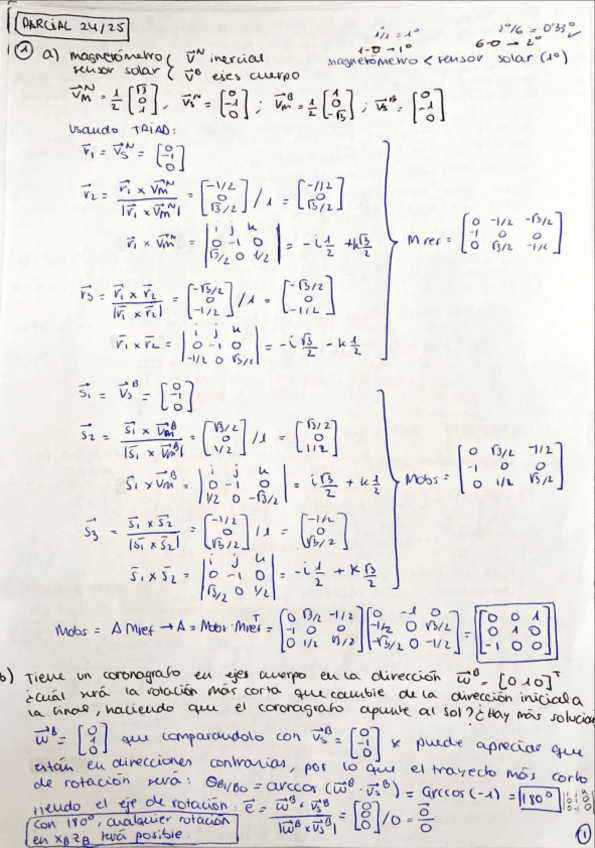 PARCIAL 24/25
i/i = 1° 1°/6 = 0'33°
1-0 → 1° 6-0 → 2°
① a) magnetómetro { V^N inercial magnetómetro < sensor solar (1°)
sensor solar { V^B ejes cuerpo
V_m^N = 1/2 [√3 0 1], V_s^N = [0 -1 0]; V_m^B = 1/2 [1 0 -√3]; V_s^B = [0 -1 0]
Usando TRIAD:
r1 = V_s^N = [0 -1 0]
r2 = r1 x V_m^N / |r1 x V_m^N| = [-1/2 0 √3/2] / 1 = [-1/2 0 √3/2]
r1 x V_m^N = | i j k 0 -1 0 √3/2 0 1/2 | = -i 1/2 + k √3/2
Mref = [0 -1/2 -√3/2 -1 0 0 0 √3/2 -1/2]
r3 = r1 x r2 / |r1 x r2| = [-√3/2 0 -1/2] / 1 = [-√3/2 0 -1/2]
r1 x r2 = | i j k 0 -1 0 -1/2 0 √3/2 | = -i √3/2 - k 1/2
s1 = V_s^B = [0 -1 0]
s2 = s1 x V_m^B / |s1 x V_m^B| = [√3/2 0 1/2] / 1 = [√3/2 0 1/2]
s1 x V_m^B = | i j k 0 -1 0 1/2 0 -√3/2 | = i √3/2 + k 1/2
Mobs = [0 √3/2 -1/2 -1 0 0 0 1/2 √3/2]
s3 = s1 x s2 / |s1 x s2| = [-1/2 0 √3/2] / 1 = [-1/2 0 √3/2]
s1 x s2 = | i j k 0 -1 0 √3/2 0 1/2 | = -i 1/2 + k √3/2
Mobs = A Mref → A = Mobs · Mref^T = [0 √3/2 -1/2 -1 0 0 0 1/2 √3/2] [0 -1 0 -1/2 0 √3/2 -√3/2 0 -1/2] = [0 0 1 0 1 0 -1 0 0]
b) Tiene un coronagrafo en ejes cuerpo en la dirección w^B = [0 1 0]^T
¿cuál será la rotación más corta que cambie de la dirección inicial a
la final, haciendo que el coronagrafo apunte al sol? ¿Hay más solucion
w^B = [0 1 0] que comparandolo con V_s^B = [0 -1 0] se puede apreciar que
están en direcciones contrarias, por lo que el trayecto más corto
de rotación será: θ_B1/B0 = arccos (w^B · V_s^B) = arccos (-1) = 180°
siendo el eje de rotación: e = w^B x V_s^B / |w^B x V_s^B| = [0 0 0] / 0 = 0/0
con 180°, cualquier rotación
en x_B z_B será posible.
①